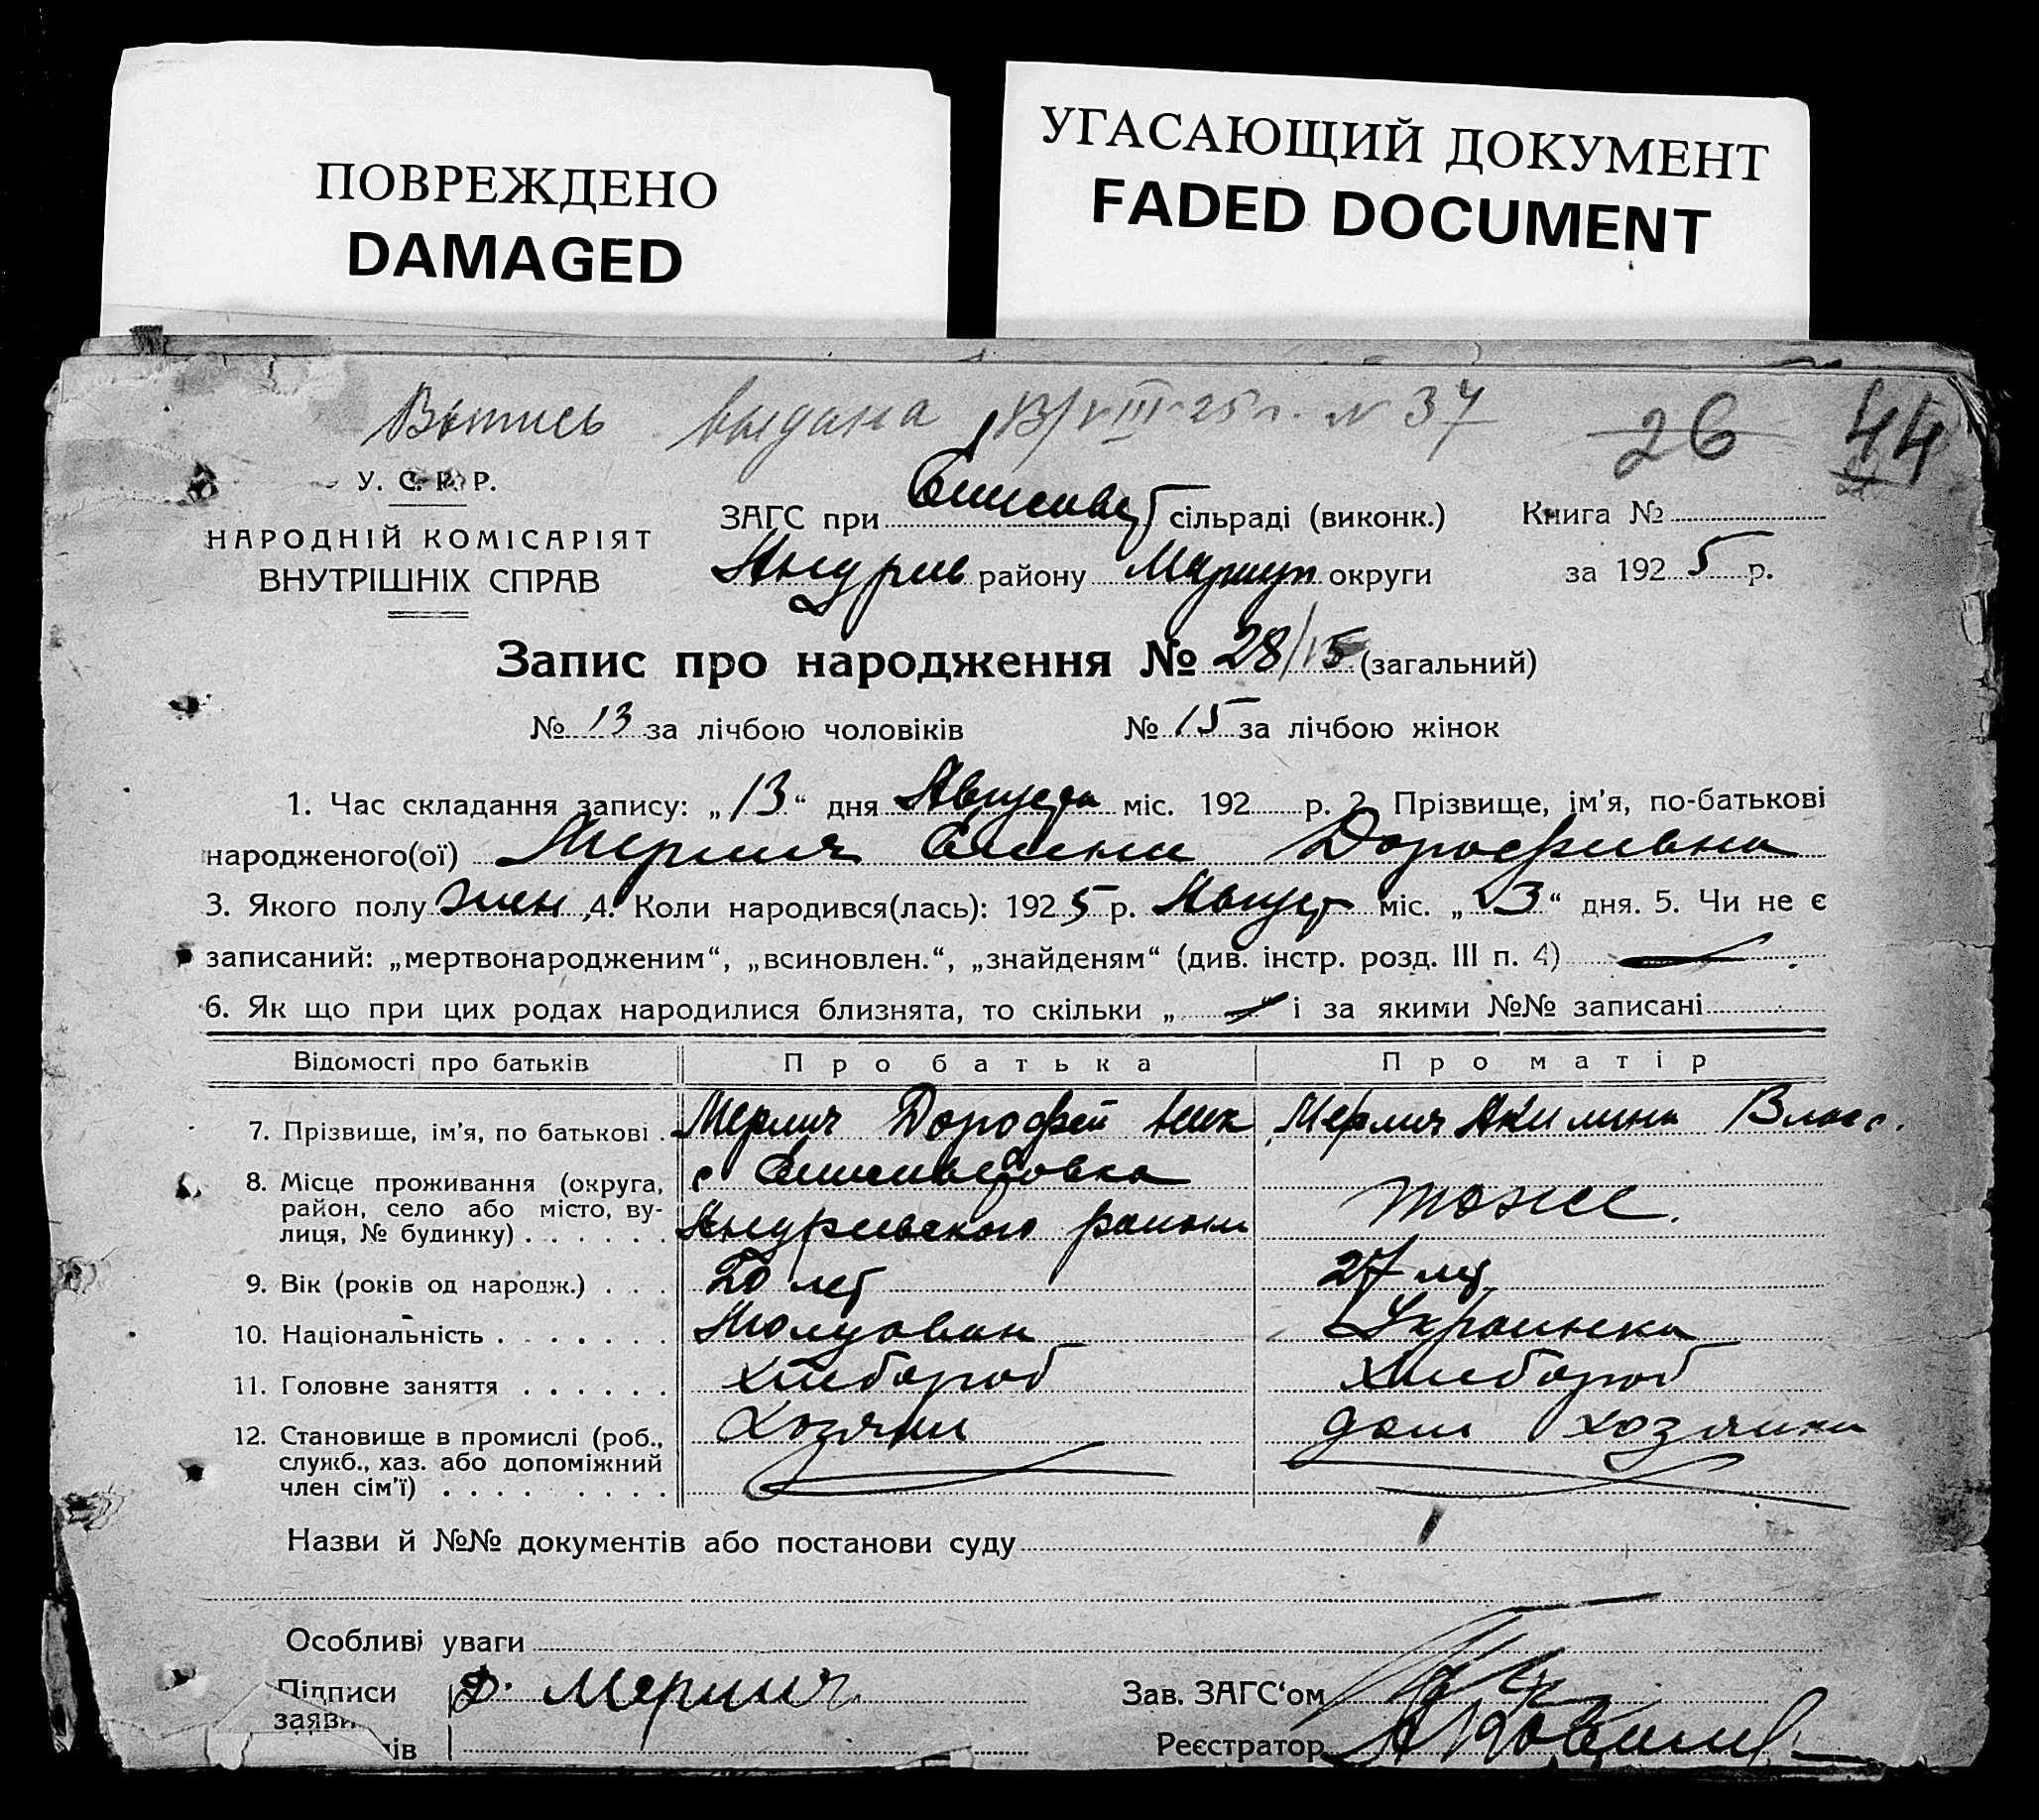 ПОВРЕЖДЕНО
DAMAGED
УГАСАЮЩИЙ ДОКУМЕНТ
FADED DOCUMENT
Выпись выдана 13/VIII-25 г. № 37 26 44
У. С. Р. Р.
НАРОДНІЙ КОМІСАРІЯТ
ВНУТРІШНІХ СПРАВ
ЗАГС при Елисавет сільраді (виконк.) Книга №
району округи за 1925 р.
Запис про народження № 28/15 (загальний)
№ 13 за лічбою чоловіків № 15 за лічбою жінок
1. Час складання запису: „13“ дня Августа міс. 192 р. 2. Прізвище, ім'я, по-батькові
народженого(ої) Мерлич Дорофивна
3. Якого полу жен, 4. Коли народився(лась): 1925 р. Август міс. „3“ дня. 5. Чи не є
записаний: „мертвонародженим“, „всиновлен.“, „знайденям“ (див. інстр. розд. III п. 4)
6. Як що при цих родах народилися близнята, то скільки „ “ і за якими №№ записані
Відомості про батьків Про батька Про матір
7. Прізвище, ім'я, по батькові Мерлич Дорофей Мерлич Акилина Влас.
8. Місце проживання (округа, район, село або місто, вулиця, № будинку) с Елисаветовка
района тоже.
9. Вік (років од народж.) 20 лет 27 лет
10. Національність Молдован Украинка
11. Головне заняття хлибороб хлибороб
12. Становище в промислі (роб., служб., хаз. або допоміжний член сім'ї) Хозяин дом хозяйка
Назви й №№ документів або постанови суду
Особливі уваги
Підписи Д. Мерлич Зав. ЗАГС'ом
Реєстратор